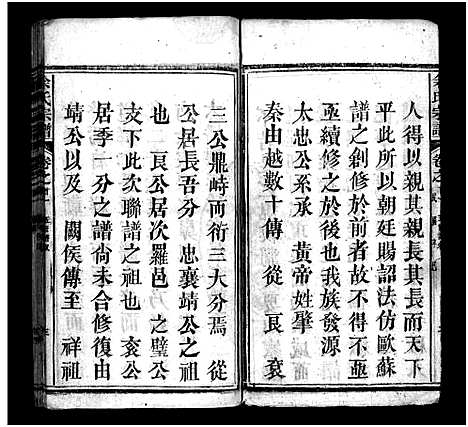 人得以親其長其長而天下
平此所以朝廷賜詔法仿歐蘇
譜之創修於前者故不得不
亟續修之於後也我族發源
太忠公系承　黃帝姓肇
秦由越數十傳　從　良　袞
三公鼎峙而衍三大分焉　從
公居長吾分　忠襄靖公之祖
也　良公居次羅邑　之璧公
支下此次聯譜之祖也　袞公
居季一分之譜尚未合修復由
靖公以及　關侯傳至　祥祖
余氏宗譜
卷之首